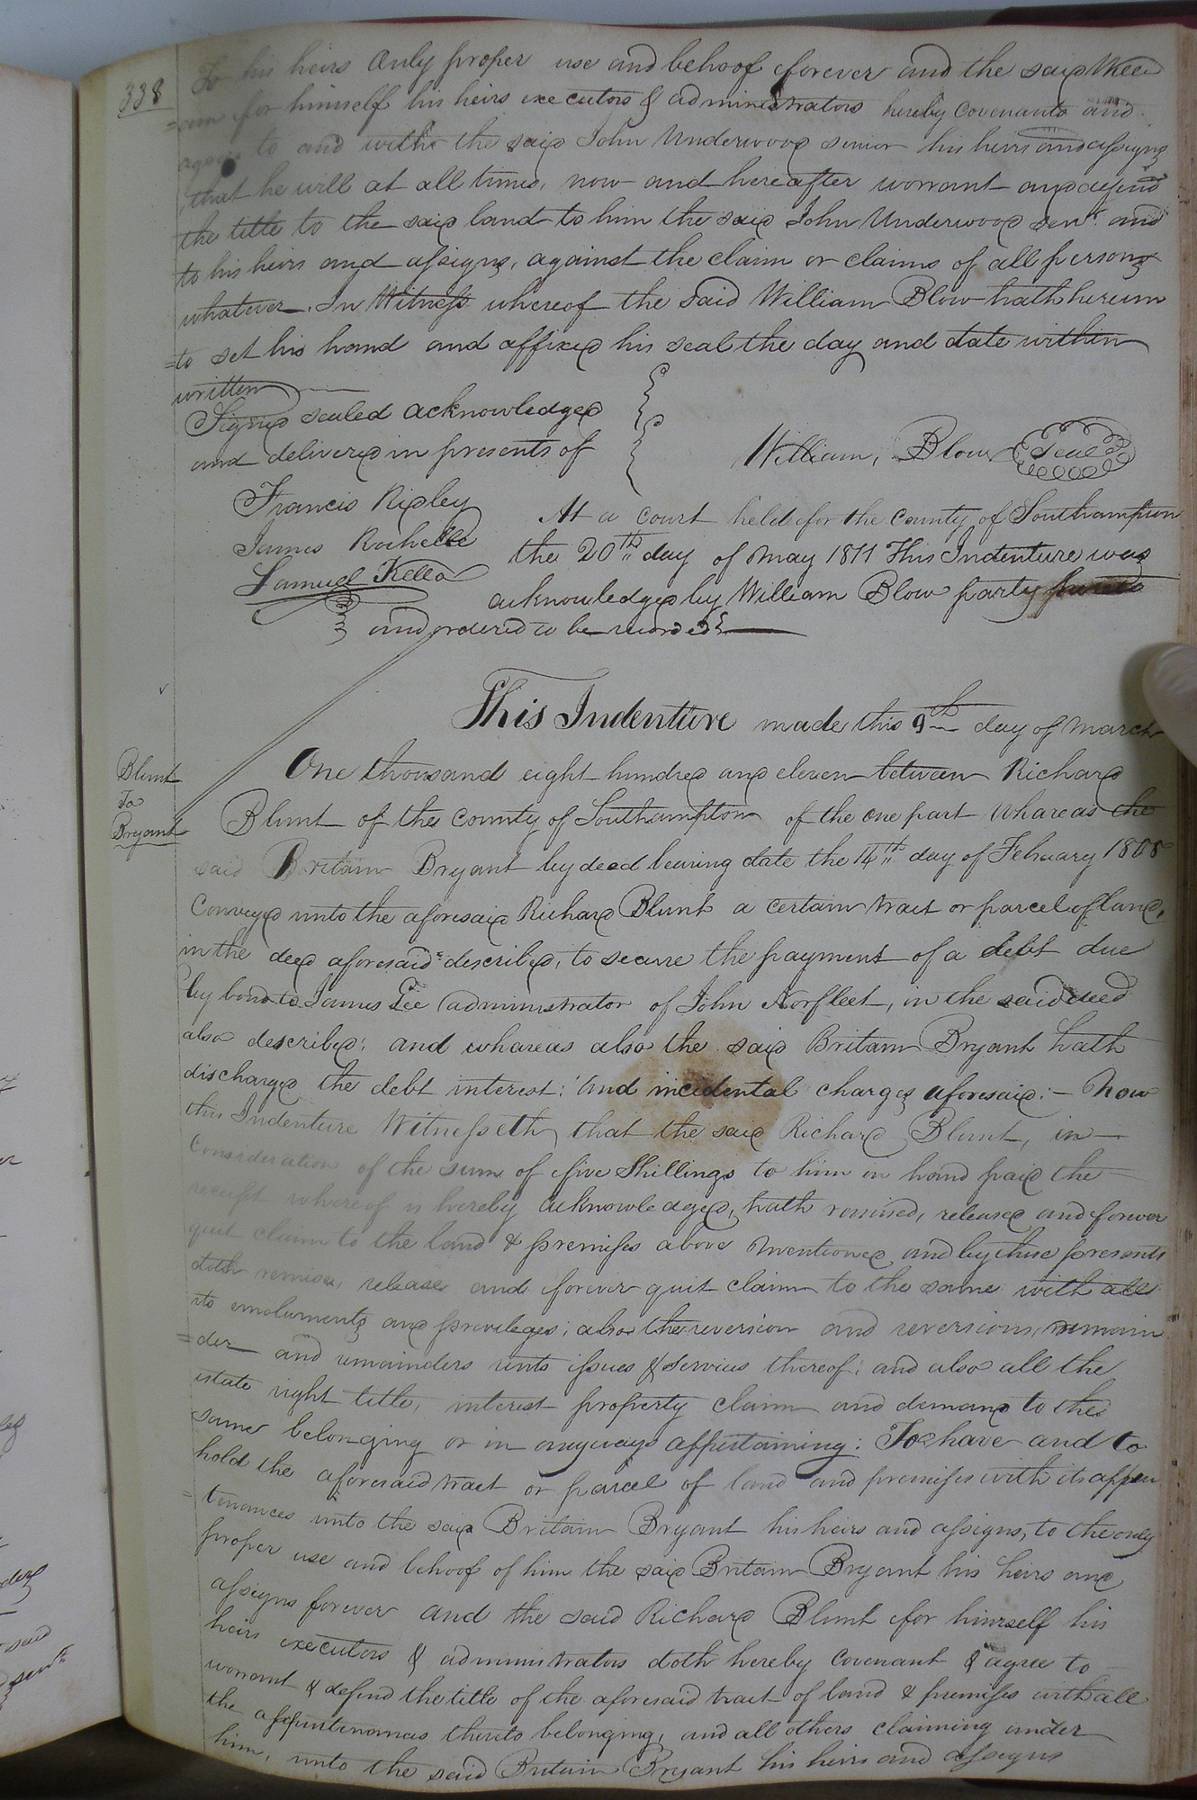 338
To his heirs Only proper use and behoof forever and the said Willi
=am for himself his heirs executors & administrators hereby covenants and
agree to and with the said John Underwood senior his heirs and assigns
that he will at all times, now and hereafter warrant and defend
the title to the said land to him the said John Underwood senr. and
to his heirs and assigns, against the claim or claims of all persons
whatever. In Witness whereof the said William Blow hath hereun
=to set his hand and affixed his seal the day and date within
written
Signed sealed acknowledged
and delivered in presents of
William, Blow Seal
Francis Ridley
James Rochelle
Samuel Kello
At a court held for the county of Southampton
the 20th day of May 1811 This Indenture was
acknowledged by William Blow party
and ordered to be recorded
This Indenture made this 9th day of March
Blunt
To
Bryant
One thousand eight hundred and eleven between Richard
Blunt of the County of Southampton of the one part Whareas the
said Britain Bryant by deed bearing date the 14th day of February 1808
Conveyed unto the aforesaid Richard Blunt a certain tract or parcel of land,
in the deed aforesaid described, to secure the payment of a debt due
by bond to James Lee administrator of John Norfleet, in the said deed
also described; and whareas also the said Britain Bryant hath
discharged the debt interest: and incidental charges aforesaid:- Now
this Indenture Witnesseth that the said Richard Blunt, in
Consideration of the sum of five Shillings to him in hand paid the
receipt whereof is hereby acknowledged, hath remised, released and forever
quit claim to the land & premises above mentioned and by these presents
doth remise, release and forever quit claim to the same with all
its emoluments and privileges; also the reversion and reversions, remain
=der and remainders rents issues & services thereof; and also all the
estate right title, interest property claim and demand to the
same belonging or in anyways appertaining: To have and to
hold the aforesaid tract or parcel of land and premises with its appur
=tenances unto the said Britain Bryant his heirs and assigns, to the only
proper use and behoof of him the said Britain Bryant his heirs and
assigns forever and the said Richard Blunt for himself his
heirs executors & administrators doth hereby covenant & agree to
warrant & defend the title of the aforesaid tract of land & premises with all
the appurtenances thereto belonging, and all others claiming under
him, unto the said Britain Bryant his heirs and assigns